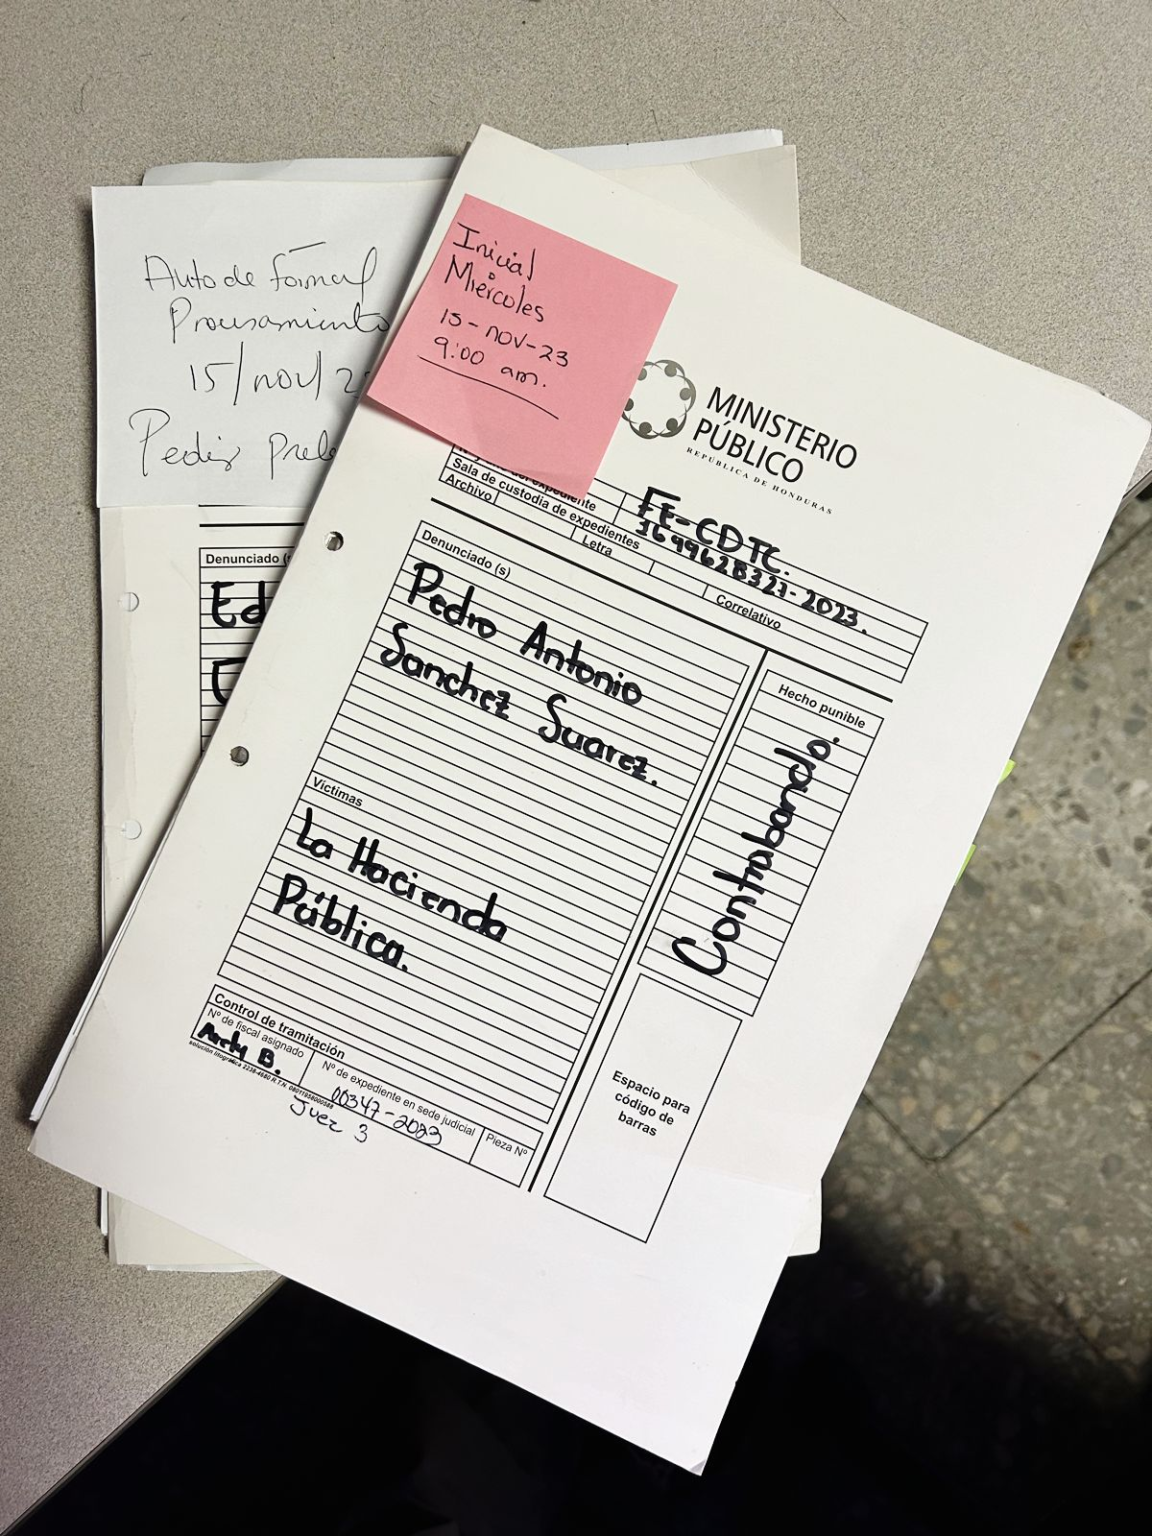 Auto de formal
Procesamiento
15/nov/2
Pedir prel
Denunciado (
Ed
Inicial
Miércoles
15-nov-23
9:00 am.
MINISTERIO
PÚBLICO
REPÚBLICA DE HONDURAS
del expediente
FE-CDTC.
Sala de custodia de expedientes
1699628327-2023.
Archivo
Letra
Correlativo
Denunciado (s)
Pedro Antonio
Sanchez Suarez.
Hecho punible
Contrabando.
Víctimas
La Hacienda
Pública.
Control de tramitación
Nº de fiscal asignado
B.
Nº de expediente en sede judicial
00347-2023
Pieza Nº
Juez 3
Espacio para
código de
barras